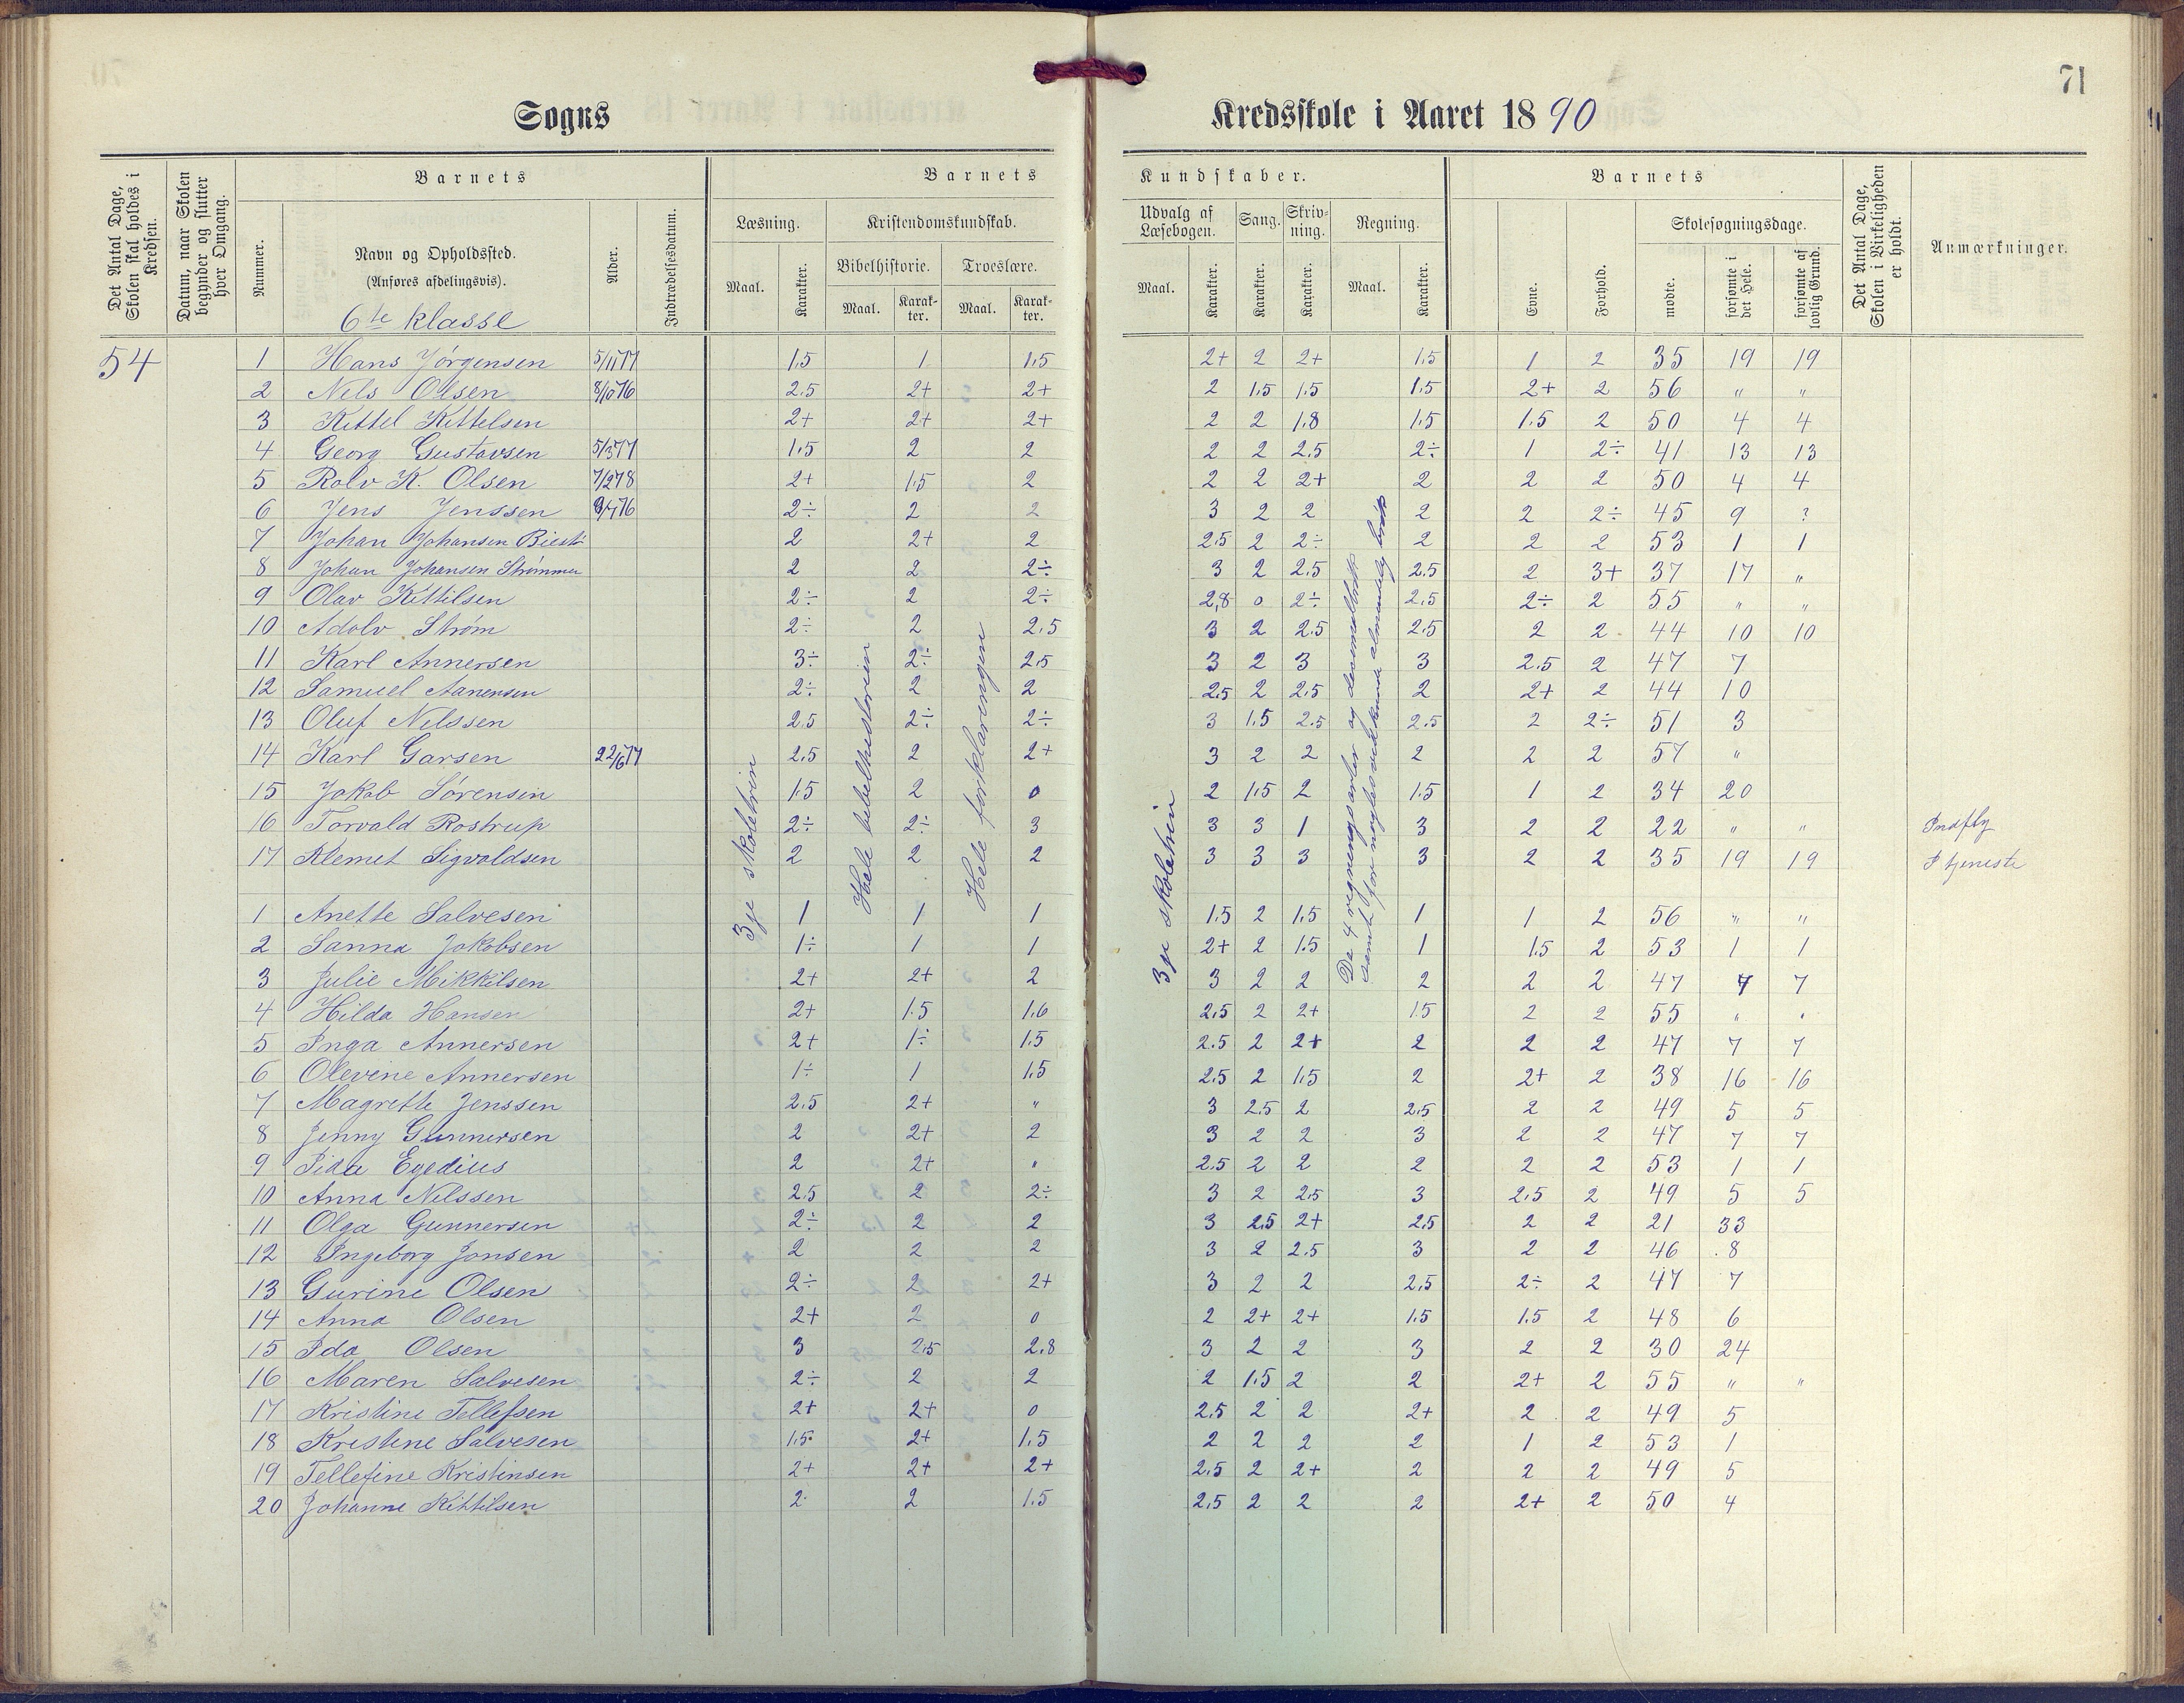 71
Sogns Kredsskole i Aaret 18 90
Det Antal Dage, Skolen skal holdes i Kredsen.
Datum, naar Skolen begynder og slutter hver Omgang.
Barnets
Nummer.
Navn og Opholdssted.
(Anføres afdelingsvis).
6te klasse
Alder.
Indtrædelsesdatum.
Barnets Kundskaber.
Læsning.
Maal.
Karakter.
Kristendomskundskab.
Bibelhistorie.
Maal.
Karakter.
Troeslære.
Maal.
Karakter.
Udvalg af Læsebogen.
Maal.
Karakter.
Sang.
Karakter.
Skrivning.
Karakter.
Regning.
Maal.
Karakter.
Barnets
Evne.
Forhold.
Skolesøgningsdage.
mødte.
forsømte i det Hele.
forsømte af lovlig Grund.
Det Antal Dage, Skolen i Virkeligheden er holdt.
Anmærkninger.
54
3je skoletrin
Hele bibelhistorien
Hele forklaringen
3je skoletrin
De 4 regningsarter og desimalbrøk
samt for nogles vedkomm. almindelig brøk
1 Hans Jørgensen 5/11 77 1.5 1 1.5 2+ 2 2+ 1.5 1 2 35 19 19
2 Nels Olsen 8/10 76 2.5 2+ 2+ 2 1.5 1.5 1.5 2+ 2 56 " "
3 Kittel Kittelsen 2+ 2+ 2+ 2 2 1.8 1.5 1.5 2 50 4 4
4 Georg Gustavsen 5/3 77 1.5 2 2 2 2 2.5 2÷ 1 2÷ 41 13 13
5 Rolv K. Olsen 7/2 78 2+ 1.5 2 2 2 2+ 2 2 2 50 4 4
6 Jens Jenssen 2÷ 2 2 3 2 2 2 2 2÷ 45 9 ?
7 Johan Johansen 2 2+ 2 2.5 2 2÷ 2 2 2 53 1 1
8 Johan Johansen Strømmen 2 2 2÷ 3 2 2.5 2.5 2 3+ 37 17 "
9 Olav Kittilsen 2÷ 2 2÷ 2,8 0 2÷ 2.5 2÷ 2 55 " "
10 Adolv Strøm 2÷ 2 2.5 3 2 2.5 2.5 2 2 44 10 10
11 Karl Annersen 3÷ 2÷ 2.5 3 2 3 3 2.5 2 47 7
12 Samuel Aanensen 2÷ 2 2 2.5 2 2.5 2 2+ 2 44 10
13 Oluf Nelssen 2.5 2÷ 2÷ 3 1.5 2.5 2.5 2 2÷ 51 3
14 Karl Garsen 22/6 77 2.5 2 2+ 3 2 2 2 2 2 57 "
15 Jakob Sørensen 1.5 2 0 2 1.5 2 1.5 1 2 34 20
16 Torvald Rostrup 2÷ 2÷ 3 3 3 1 3 2 2 22 " " Indfly
17 Klemet Sigvaldsen 2 2 2 3 3 3 3 2 2 35 19 19 I tjeneste
1 Anette Salvesen 1 1 1 1.5 2 1.5 1 1 2 56 " "
2 Sanna Jakobsen 1÷ 1 1 2+ 2 1.5 1 1.5 2 53 1 1
3 Julie Mikkilsen 2+ 2+ 2 3 2 2 2 2 2 47 7 7
4 Hilda Hansen 2+ 1.5 1.6 2.5 2 2+ 1.5 2 2 55 " "
5 Inga Annersen 2+ 1÷ 1.5 2.5 2 2+ 2 2 2 47 7 7
6 Olevine Annersen 1÷ 1 1.5 2.5 2 1.5 2 2+ 2 38 16 16
7 Magrethe Jenssen 2.5 2+ " 3 2.5 2 2.5 2 2 49 5 5
8 Jenny Gunnersen 2 2+ 2 3 2 2 3 2 2 47 7 7
9 Egedius 2 2+ " 2.5 2 2 2 2 2 53 1 1
10 Anna Nelssen 2.5 2 2÷ 3 2 2.5 3 2.5 2 49 5 5
11 Olga Gunnersen 2÷ 2 2 3 2.5 2+ 2.5 2 2 21 33
12 Ingeborg Jonsen 2 2 2 3 2 2.5 3 2 2 46 8
13 Gurine Olsen 2÷ 2 2+ 3 2 2 2.5 2÷ 2 47 7
14 Anna Olsen 2+ 2 0 2 2+ 2+ 1.5 1.5 2 48 6
15 Ida Olsen 3 2.5 2.8 3 2 2 3 2 2 30 24
16 Maren Salvesen 2÷ 2 2 2 1.5 2 2 2+ 2 55 " "
17 Kristine Tellefsen 2+ 2+ 0 2.5 2 2 2+ 2 2 49 5
18 Kristine Salvesen 1.5 2+ 1.5 2 2 2 2 1 2 53 1
19 Tellefine Kristinsen 2+ 2+ 2+ 2.5 2 2+ 2 2 2 49 5
20 Johanne Kittilsen 2 2 1.5 2.5 2 2 2 2+ 2 50 4